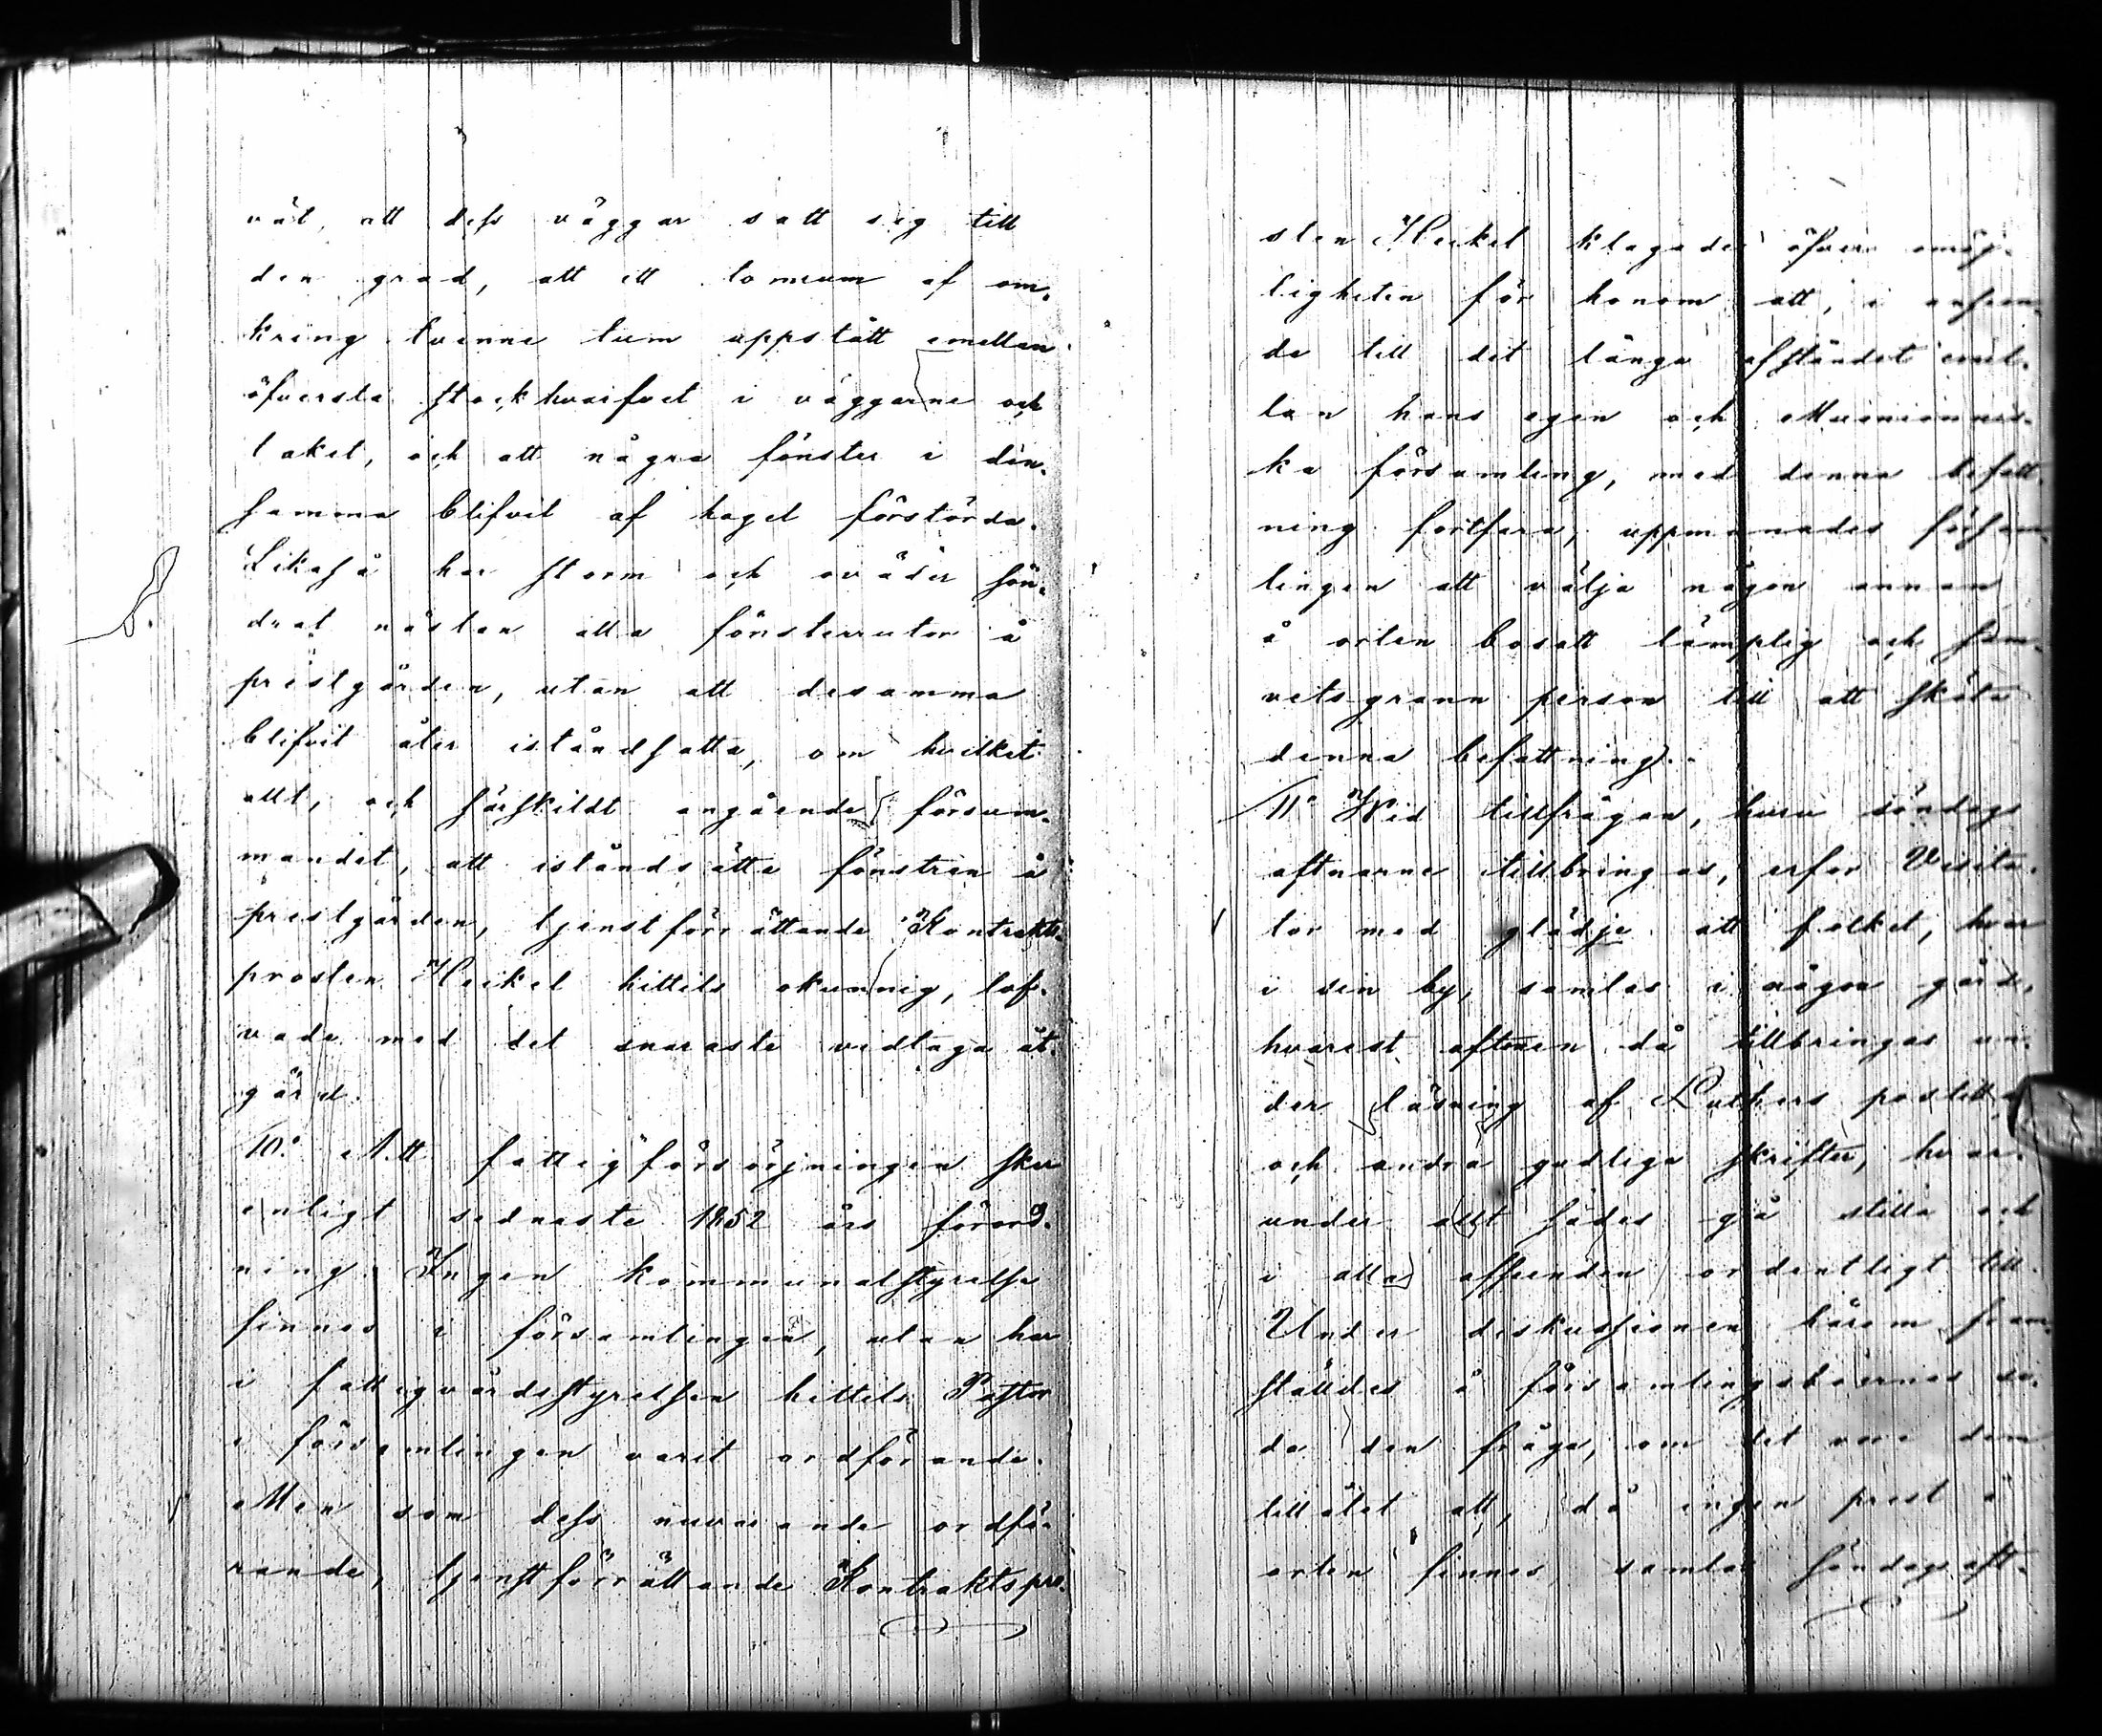 vät, att dess väggar satt sig till
den grad, att ett tomrum af om-
kring tvenne tum uppstått emellan
öfversta stockhvarfvet i väggarne och
taket, och att några fönster i den-
samma blifvit af hagel förstörda.
Likaså har storm och oväder sön-
drat nästan alla fönsterrutor å
prestgården, utan att desamma
blifvit åter iståndsatta, om hvilket
allt, och särskildt angående försum-
mandet, att iståndsätta fönstren å
prestgården, tjenstförrättande Kontrakts-
prosten Heikel hittils okunnig, lof-
vade med det snaraste vidtaga åt-
gärd.
10:o Att fattigförsörjningen sker
enligt sednaste 1852 års förord-
ning. Ingen kommunalstyrelse
finnes i församlingen, utan har
i fattigvårdsstyrelsen hittils Pastor
i församlingen varit ordförande.
Men som dess nuvarande ordfö-
rande, tjenstförrättande Kontraktspro-
sten Heikel klagade öfver omöj-
ligheten för honom att, i anseen-
de till det långa afståndet emel-
lan hans egen och Muonionnis-
ka församling, med denna befatt-
ning fortfara, uppmanades försam-
lingen att välja någon annan
å orten bosatt lämplig och sam-
vetsgrann person till att sköta
denna befattning.
11:o Wid tillfrågan, huru söndags
aftnarne tillbringas, erfor Visita-
tor med glädje att folket, hvar
i sin by, samlas i någon gård,
hvarest aftonen då tillbringas un-
der läsning af Luthers postilla
och andra gudliga skrifter, hvar-
under allt sades gå stilla och
i alla afseenden ordentligt till.
Under diskussionen härom fram-
ställdes å församlingsboernes si-
da den fråga, om det vore dem
tillåtet att, då ingen prest å
orten finnes, samlas söndags aft-